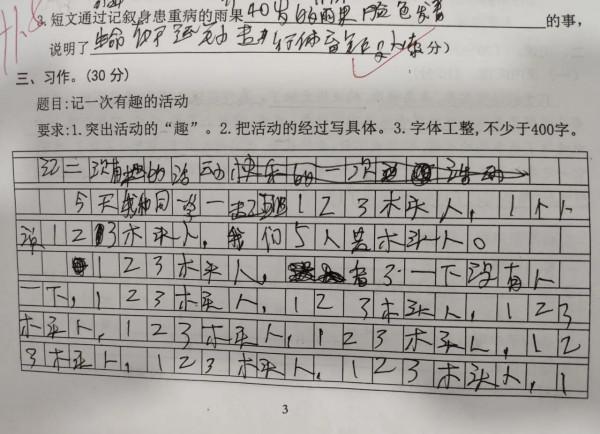 3.短文通过记叙身患重病的雨果40岁的雨果脸色发青的事,
说明了生命 运动 分)
三、习作。(30分)
题目:记一次有趣的活动
要求:1.突出活动的“趣”。2.把活动的经过写具体。3.字体工整,不少于400字。
记一次有趣的活动快乐的一次活动
今天我和同学一去玩123木头人,1个人
说123木头人,我们5人当木头人。
123木头人,看了一下没有人
一下,123木头人,123木头人,123
木头人,123木头人,123木头人,12
3木头人,123木头人,123木头人,1
3